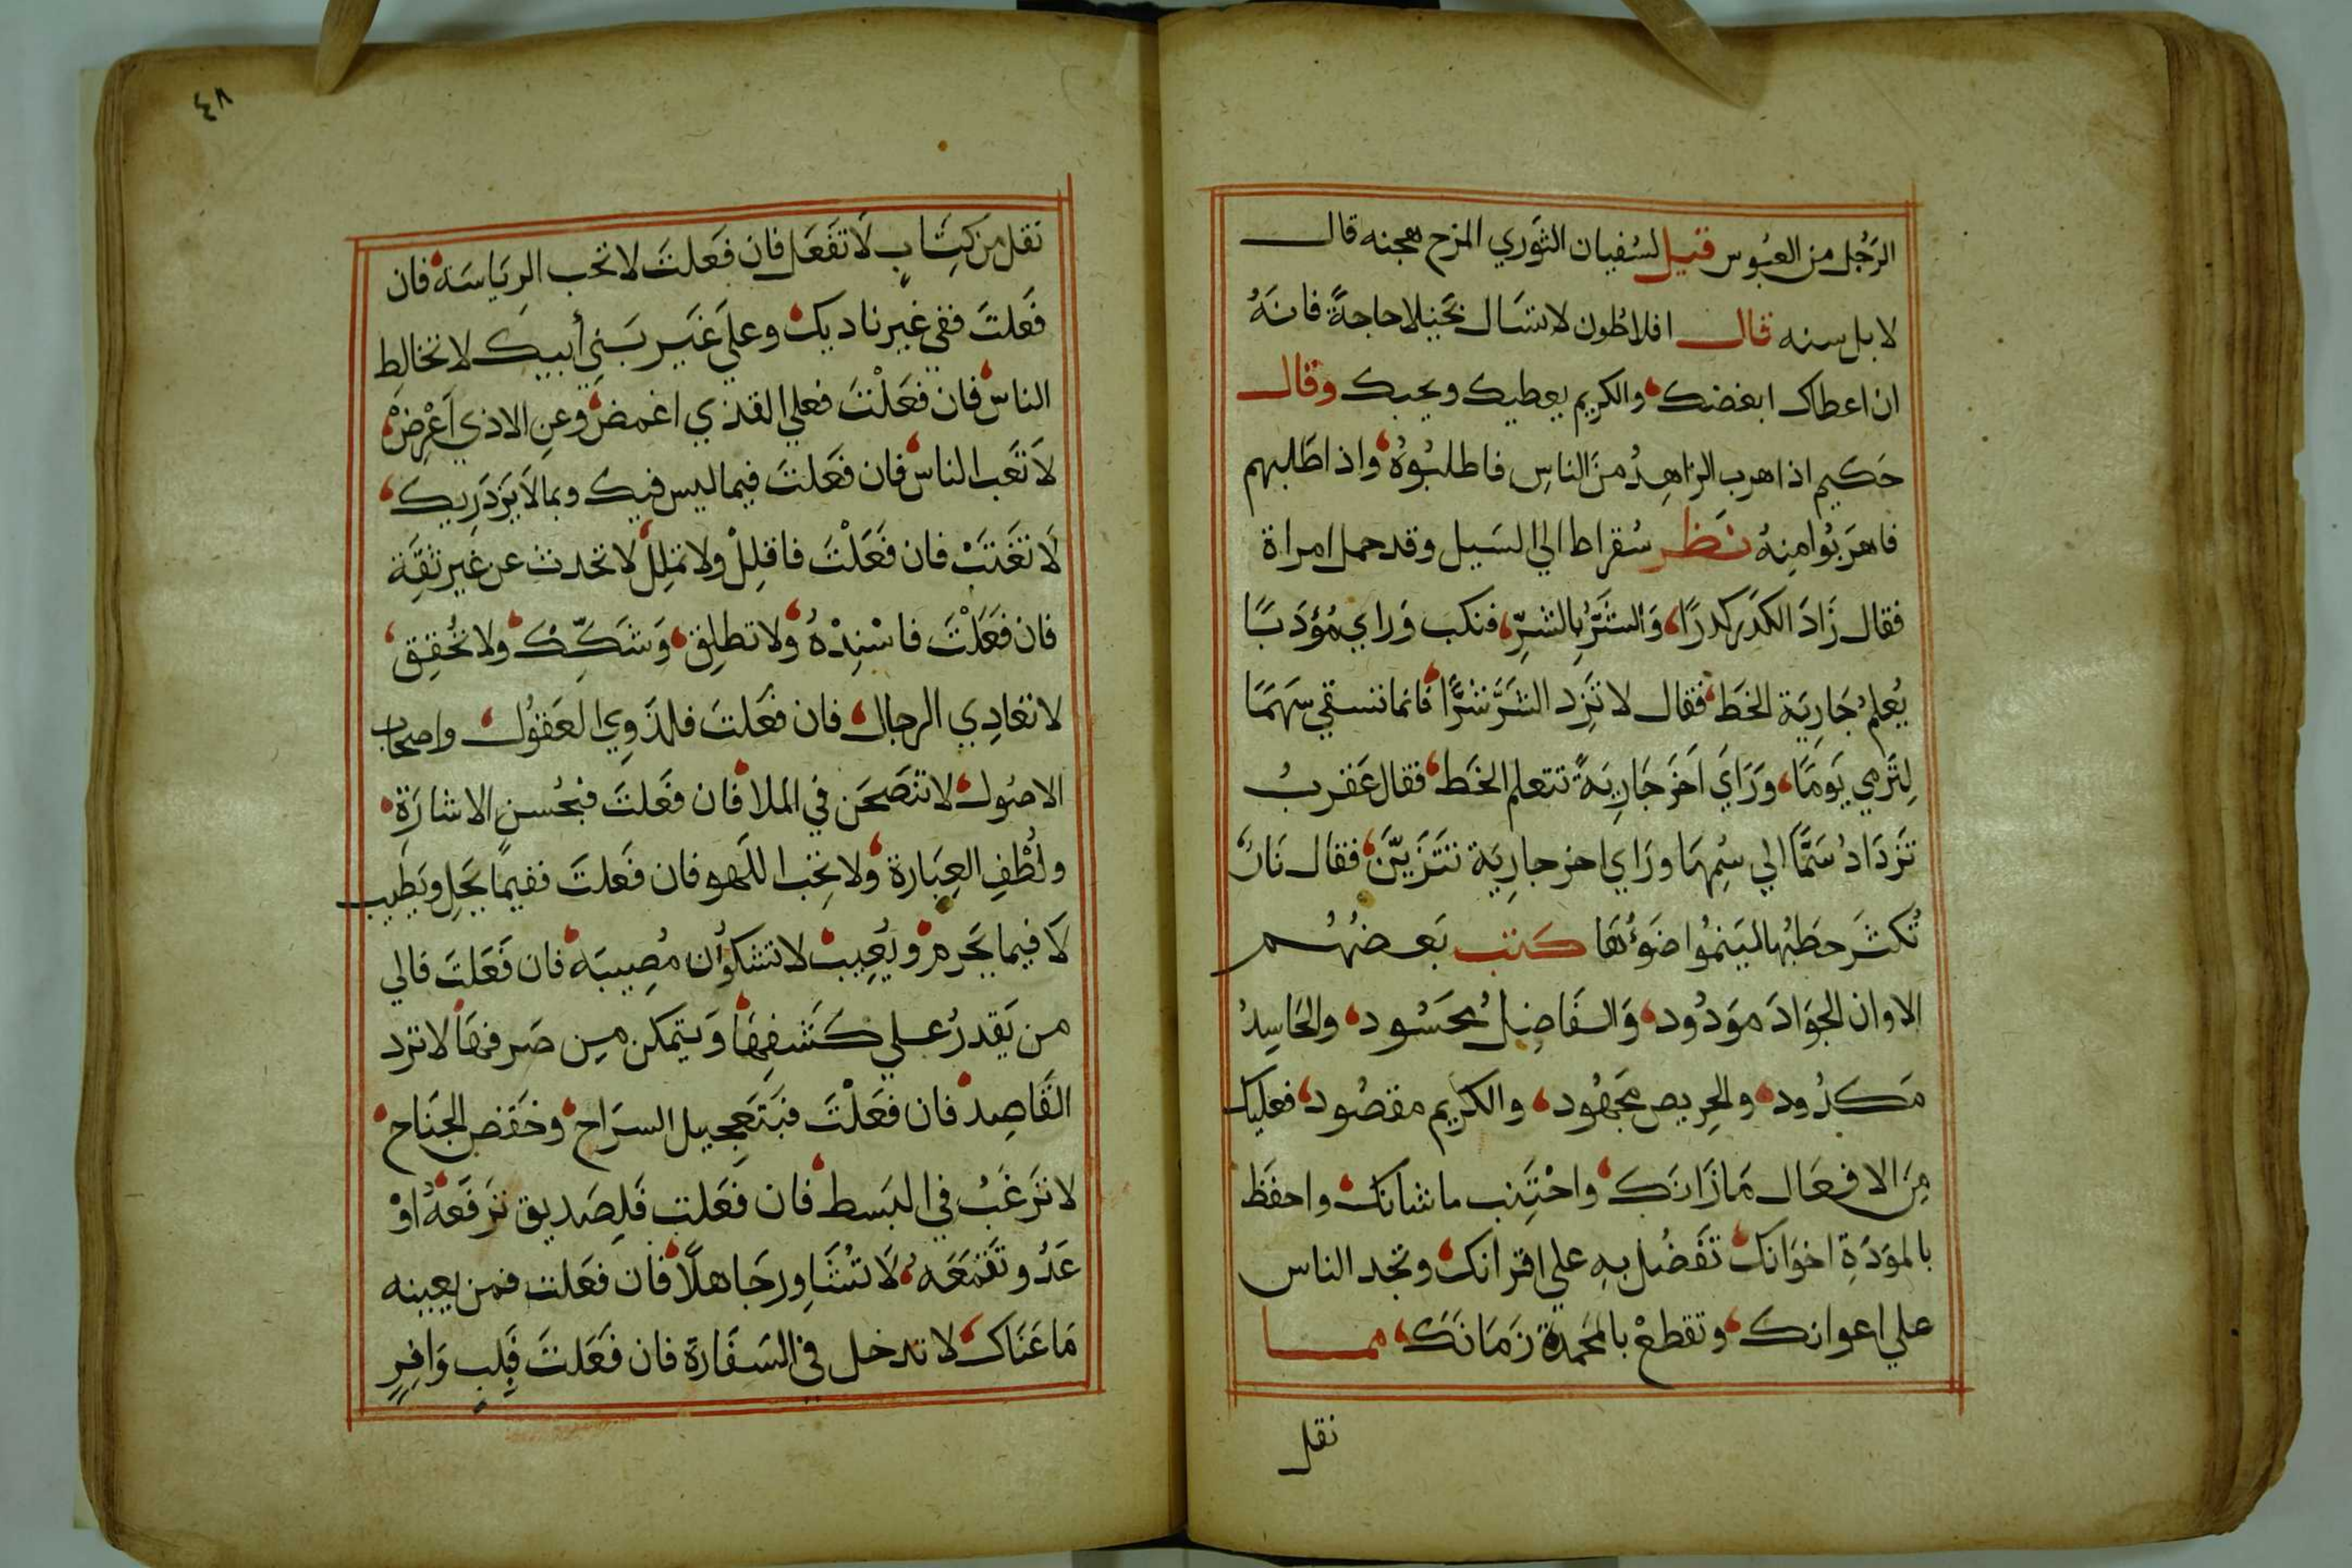 الرَجُل من العبُوس قيل لسُفيان الثوري المزح هجنه قال
لا بل سنه قال افلاطُون لا تسَال بخيلا حاجةً فانهُ
ان اعطاك ابغضك والكريم يعطيك ويحبك وقال
حَكيم اذا هرب الزاهِدُ منَ الناسِ فاطلبُوهُ واذا طلبهم
فاهرَبُوا مِنهُ نَظر سُقراط الي السَيل وقد حمل امراة
فقال زَادَ الكدَر كدرًا وَالشَرُّ بالشرِّ فنكب وَراي مُؤدَبًا
يُعلمُ جَاريَة الخَط فقال لا تزِد الشَرَّ شرًّا فانما تسقي سَهمًا
لِتَرمي يَومًا وَرَايَ اخرَ جَاريَةً تتعلم الخَط فقال عَقربُ
تَزدَادُ سَمًّا الي سُمِهَا ورَاي اخر جاريَة تتَزَيَّن فقال نَارٌ
تُكثَر حطَبُها لينمُوا ضَوُءهَا كتب بَعضهُم
الا وان الجوَادَ موَدُود وَالفَاضِل مُحَسُود والحَاسِدُ
مَكدُود والحِريص مجَهُود والكريم مقصُود فعليك
مِنَ الافعَال مَا زَانَكَ واجْتَنِب ما شانك واحفَظ
بالموَدَةِ اخوَانكَ تَفَضُل بهِ علي اقرانك وتجد الناس
علي اعوانكَ وتقطعْ بالمحَمدَة زَمَانَكَ مما
نقل
٤٨
نقل من كِتَابٍ لَا تفعَل فان فعَلتَ لا تحب الرِيَاسَة فان
فَعَلتَ ففي غير ناديك وعلَي غَير بَنيِ أبيكَ لا تخالِط
الناسَ فان فعَلْتَ فعلي القذي اغمضْ وعنِ الاذي اَعْرِضْ
لَا تَعَب الناسَ فان فعَلتَ فيما ليس فيك وبما لَا يَزدَرِيك
لَا تغَتَبْ فان فَعَلْتَ فاقلِلْ ولا تملِلْ لا تحدث عن غير ثقَة
فان فعَلْتَ فاسْنِدْهُ ولا تطلِق وَشَكِّكْ ولا تُحقِق
لا تعَادِي الرجال فان فعَلتَ فلذَوِي العَقُول واصحَاب
الاصُول لا تنصَحَن في الملا فان فعَلتَ فبحُسنِ الاشارَةِ
ولُطْفِ العِبَارَة ولا تحِب اللَهو فان فَعَلتَ ففيمَا يَحِل ويَطِيب
لَا فيما يحَرم ويُعِيب لا تشكوُن مُصِيبَة فان فَعَلتَ فالي
من يَقدرُ علي كَشفِهَا وَيتمكن مِن صَرفهَا لا ترد
القَاصِدَ فان فعَلْتَ فبَتَعجيل السرَاح وخَفض الجنَاح
لا ترَغَبْ في البسَط فان فَعَلت فَلِصَديق ترَفعَهُ اوْ
عَدُو تَقمَعَه لَا تُشاوِر جَاهلًا فان فعَلت فمن يعينه
مَا عَنَاكَ لا تدخل في السَفَارَة فان فعَلتَ فَبِلبٍ وَافِرٍ